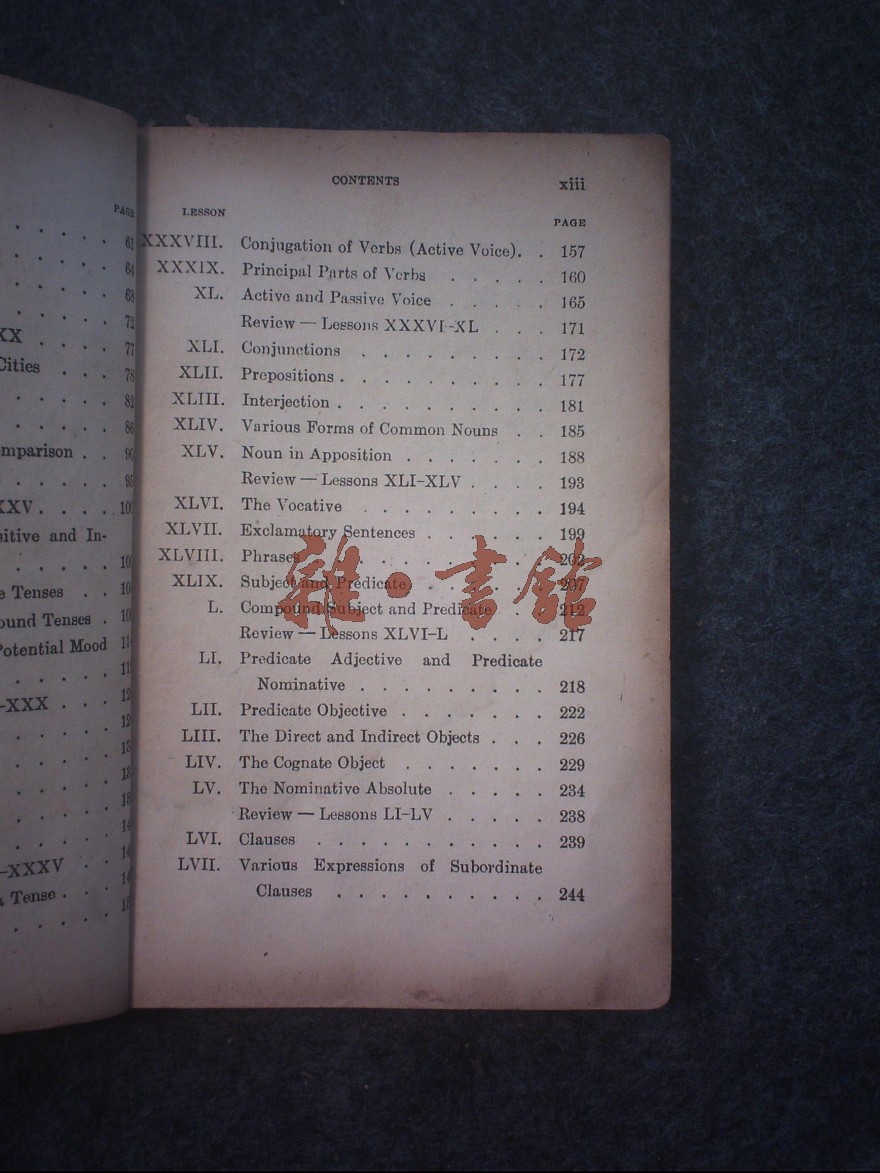 PAGE
61
64
68
72
XX . . . . 77
Cities . . . 78
82
86
mparison . . 90
95
XXV . . . .
sitive and In-
e Tenses . .
ound Tenses .
Potential Mood
-XXX . . .
-XXXV . .
Tense . . .
CONTENTS xiii
LESSON PAGE
XXXVIII. Conjugation of Verbs (Active Voice). . 157
XXXIX. Principal Parts of Verbs . . . . . 160
XL. Active and Passive Voice . . . . . 165
Review — Lessons XXXVI-XL . . . 171
XLI. Conjunctions . . . . . . . . . 172
XLII. Prepositions . . . . . . . . . . 177
XLIII. Interjection . . . . . . . . . . 181
XLIV. Various Forms of Common Nouns . . 185
XLV. Noun in Apposition . . . . . . . 188
Review — Lessons XLI-XLV . . . . 193
XLVI. The Vocative . . . . . . . . . 194
XLVII. Exclamatory Sentences . . . . . . 199
XLVIII. Phrases . . . . . . . . . . 202
XLIX. Subject and Predicate . . . . . . 207
L. Compound Subject and Predicate . . 212
Review — Lessons XLVI-L . . . . 217
LI. Predicate Adjective and Predicate
Nominative . . . . . . . . . 218
LII. Predicate Objective . . . . . . . 222
LIII. The Direct and Indirect Objects . . . 226
LIV. The Cognate Object . . . . . . . 229
LV. The Nominative Absolute . . . . . 234
Review — Lessons LI-LV . . . . . 238
LVI. Clauses . . . . . . . . . . . 239
LVII. Various Expressions of Subordinate
Clauses . . . . . . . . . . 244
雜·書館